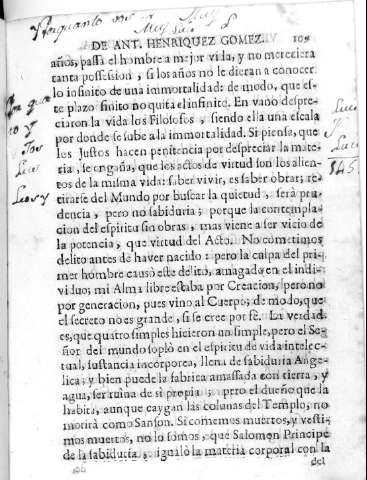 Porquanto vos
DE ANT. HENRIQUEZ GOMEZ. 109
años, passa el hombre a mejor vida, y no mereciera
tanta possession, si los años no le dieran a conocer
lo infinito de una immortalidade de modo, que es-
te plazo finito no quita el infinito. En vano despre-
ciaron la vida los Filosofos, siendo ella una escala
por donde se sube a la immortalidad. Si piensa, que
los Justos hacen penitencia por despreciar la mate-
ria, se engaña, que los actos de virtud son los alien-
tos de la misma vida: saber vivir, es saber obrar; re-
tirarse del Mundo por buscar la quietud, será pru-
dencia, pero no sabiduria; porque la contempla-
cion del espiritu sin obras, mas viene a ser vicio de
la potencia, que virtud del Acto. No cometimos
delito antes de haver nacido: pero la culpa del pri-
mer hombre causò este delito, amagado en el indi-
viduo; mi Alma libre estaba por Creacion, pero no
por generacion, pues vino al Cuerpo; de modo, que
el secreto no es grande, si se cree por fè. La verdad
es, que quatro simples hicieron un simple, pero el Se-
ñor del mundo soplò en el espiritu de vida intelec-
tual, sustancia incorporea, llena de sabiduria Ange-
lica; y bien puede la fabrica amassada con tierra, y
agua, ser ruina de si propia; pero el dueño que la
habita, aunque caygan las colunas del Templo, no
morirà como Sanson. Si comemos muertos, y vesti-
mos muertos, no lo somos, que Salomon Principe
de la sabiduria, igualò la materia corporal con la
del